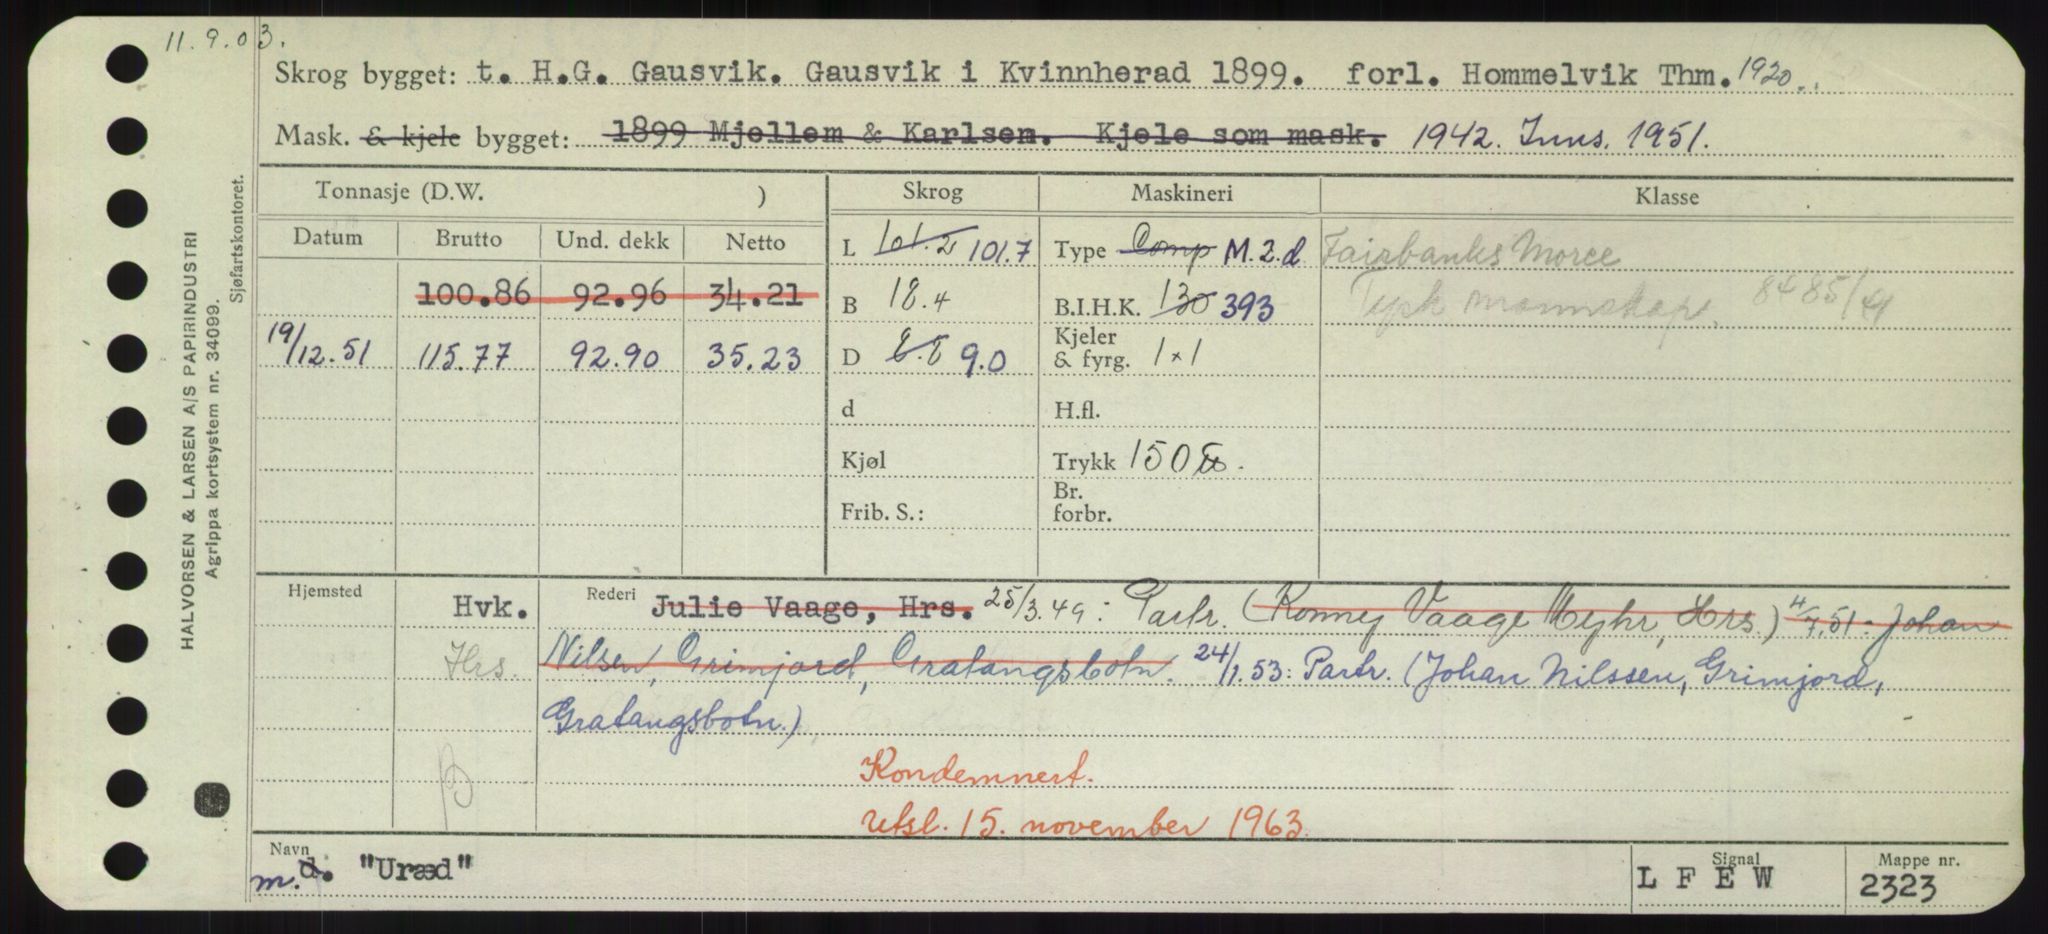 11.9.03.
Skrog bygget: t. H.G. Gausvik. Gausvik i Kvinnherad 1899. forl. Hommelvik Thm. 1920.
Mask. & kjele bygget: 1899 Mjellem & Karlsen. Kjele som mask. 1942. Inns. 1951.
Tonnasje (D.W. ) Skrog Maskineri Klasse
Datum Brutto Und. dekk Netto
L 101.2 101.7 Type Comp M.2.d Fairbanks Morce
100.86 92.96 34.21
B 18.4 B.I.H.K. 130 393 Tysk mannskap. 8485/41
19/12.51 115.77 92.90 35.23
D 8.8 9.0 Kjeler & fyrg. 1 x 1
d H.fl.
Kjøl Trykk 150 lb.
Frib. S.: Br. forbr.
Hjemsted Hvk. Rederi Julie Vaage, Hrs. 25/3.49: Partr. (Ronney Vaage Myhr, Hrs.) 4/7.51: Johan
Hrs. Nilsen, Grimjord, Gratangsbotn. 24/1.53: Partr. (Johan Nilssen, Grimjord,
Gratangsbotn.)
Kondemnert.
utsl. 15. november 1963.
Navn m. d. "Uræd" Signal L F E W Mappe nr. 2323
HALVORSEN & LARSEN A/S PAPIRINDUSTRI
Agrippa kortsystem nr. 34099.
Sjøfartskontoret.